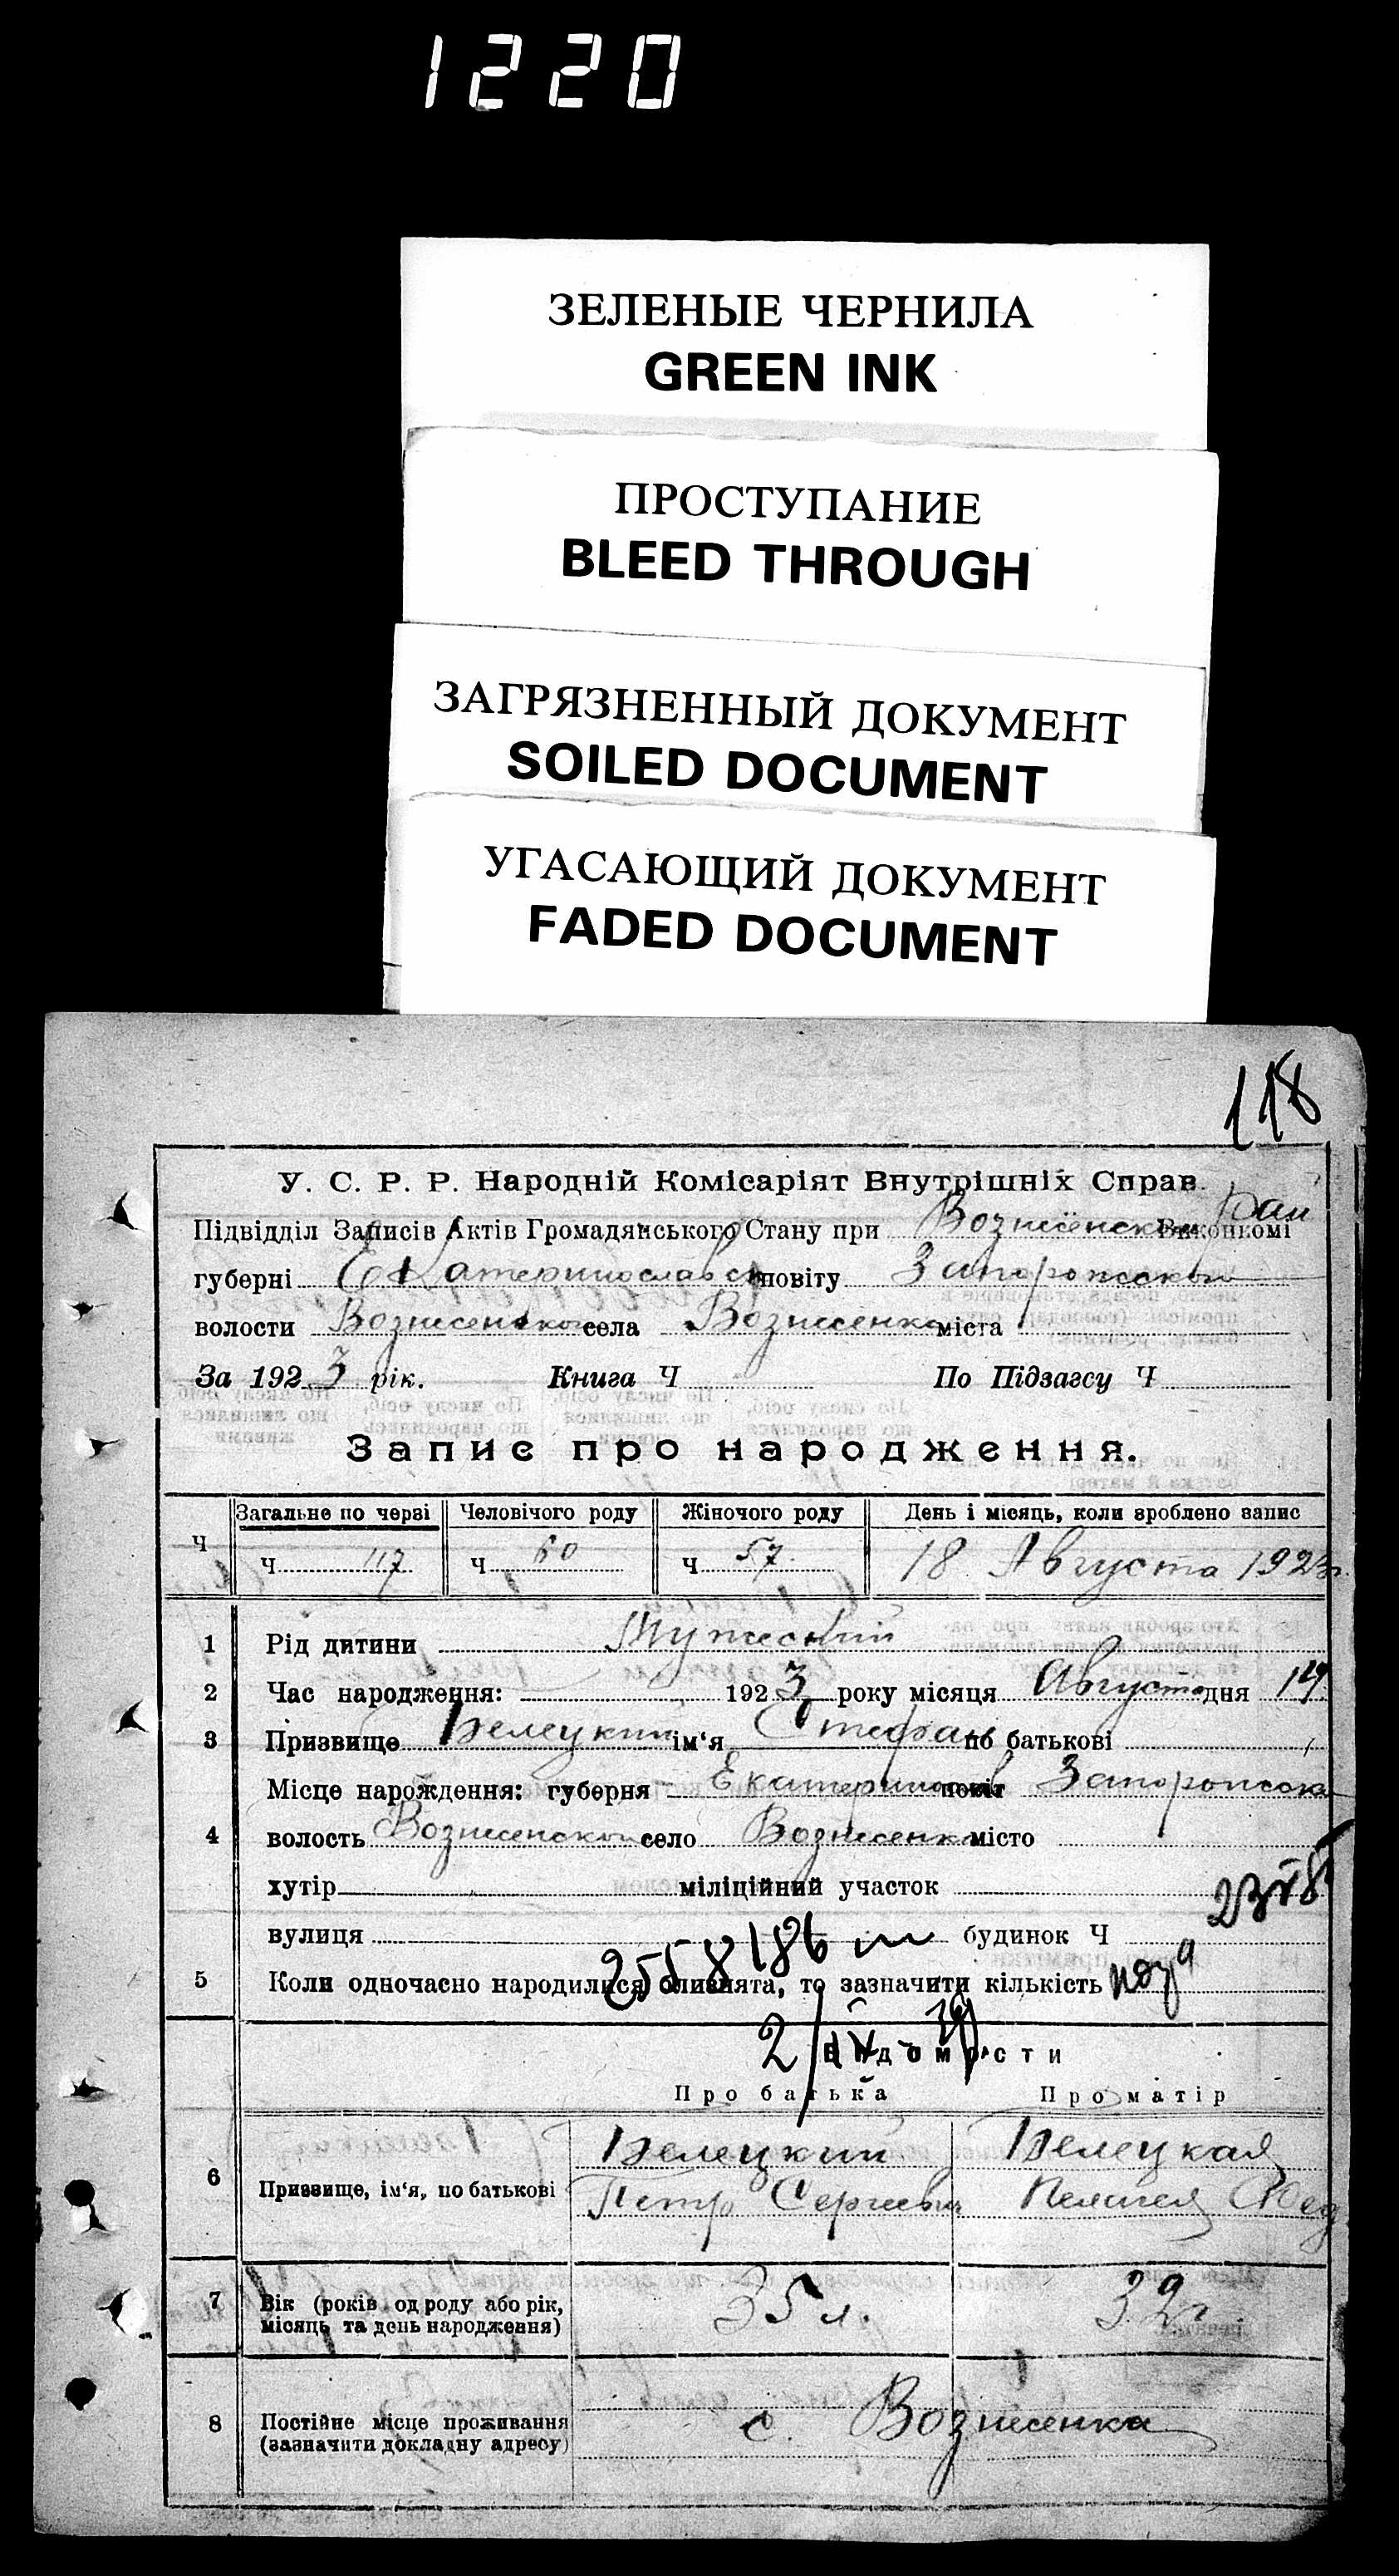 1220
ЗЕЛЕНЫЕ ЧЕРНИЛА
GREEN INK
ПРОСТУПАНИЕ
BLEED THROUGH
ЗАГРЯЗНЕННЫЙ ДОКУМЕНТ
SOILED DOCUMENT
УГАСАЮЩИЙ ДОКУМЕНТ
FADED DOCUMENT
118
У. С. Р. Р. Народній Комісаріят Внутрішніх Справ.
Підвідділ Записів Актів Громадянського Стану при Вознесенском Рай Виконкомі
губерні Екатеринославск повіту Запорожском
волости Вознесенской села Вознесенка міста
За 1923 рік. Книга Ч По Підзагсу Ч
Запис про народження.
Ч Загальне по черві Человічого роду Жіночого роду День і місяць, коли зроблено запис
Ч 117 Ч 60 Ч 57 18 Августа 1923 г.
1 Рід дитини Мужеский
2 Час народження: 1923 року місяця Августа дня 14
3 Призвище Белецкий ім‘я Стефан по батькові
Місце нарождення: губерня Екатеринослав повіт Запорожск
4 волость Вознесенской село Вознесенка місто
хутір міліційний участок
вулиця будинок Ч
5 Коли одночасно народилися близнята, то зазначити кількість
Відомости
Про батька Про матір
6 Призвище, ім‘я, по батькові Белецкий Белецкая
Петр Сергеевич Пелагея Фед
7 Вік (років од роду або рік, місяць та день народження) 35 л. 32
8 Постійне місце проживання
(зазначити докладну адресу) с. Вознесенка